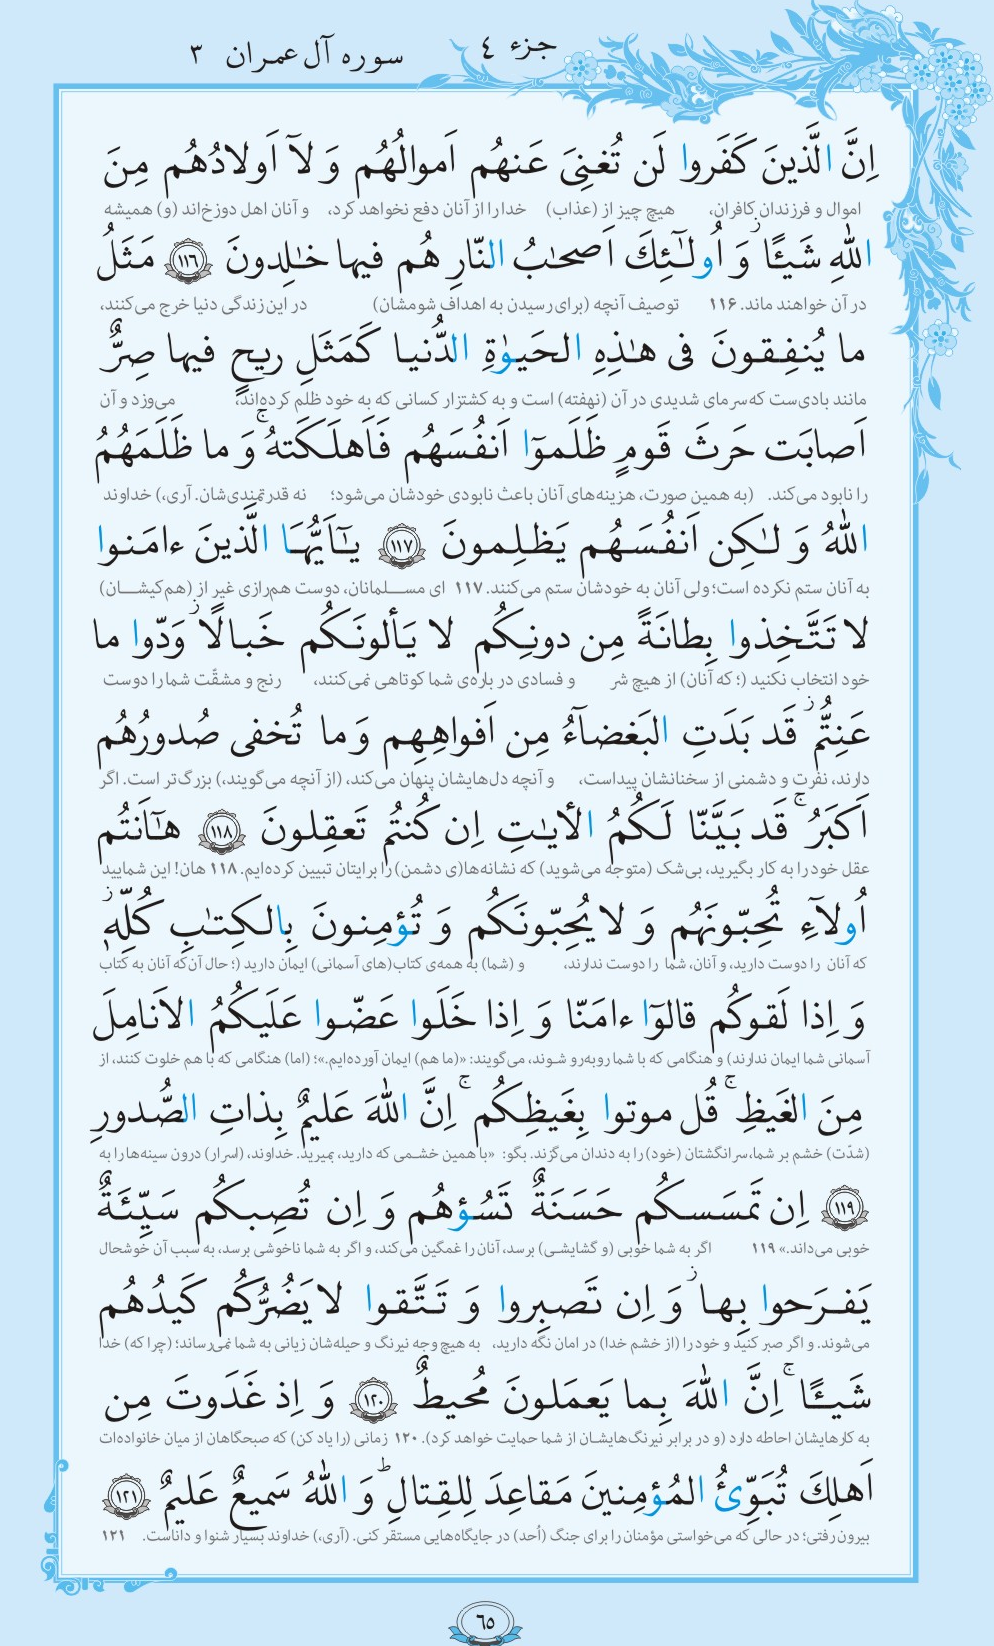 جزء ٤
سوره آل عمران ٣
اِنَّ الَّذينَ كَفَروا لَن تُغنِىَ عَنهُم اَموالُهُم وَ لآ اَولادُهُم مِنَ
اموال و فرزندان کافران، هیچ چیز از (عذاب) خدا را از آنان دفع نخواهد کرد، و آنان اهل دوزخ‌اند (و) همیشه
اللهِ شَيئًا ز وَ اُولـٰٓئِكَ اَصحـٰبُ النّارِ هُم فيها خـٰلِدونَ ١١٦ مَثَلُ
در آن خواهند ماند. ۱۱۶ توصیف آنچه (برای رسیدن به اهداف شومشان) در این زندگی دنیا خرج می‌کنند،
ما يُنفِقونَ فى هـٰذِهِ الحَيوٰةِ الدُّنيا كَمَثَلِ ريحٍ فيها صِرٌّ
مانند بادی‌ست که سرمای شدیدی در آن (نهفته) است و به کشتزار کسانی که به خود ظلم کرده‌اند، می‌وزد و آن
اَصابَت حَرثَ قَومٍ ظَلَموٓا اَنفُسَهُم فَاَهلَكَتهُ ج وَ ما ظَلَمَهُمُ
را نابود می‌کند. (به همین صورت، هزینه‌های آنان باعث نابودی خودشان می‌شود؛ نه قدرتمندی‌شان. آری،) خداوند
اللهُ وَ لـٰكِن اَنفُسَهُم يَظلِمونَ ١١٧ يـٰٓاَيُّهَا الَّذينَ ءامَنوا
به آنان ستم نکرده است؛ ولی آنان به خودشان ستم می‌کنند. ۱۱۷ ای مسـلمانان، دوست هم‌رازی غیر از (هم‌کیشـان)
لا تَتَّخِذوا بِطانَةً مِن دونِكُم لا يَألونَكُم خَبالًا ز وَدّوا ما
خود انتخاب نکنید (؛ که آنان) از هیچ شر و فسادی در باره‌ی شما کوتاهی نمی‌کنند، رنج و مشقّت شما را دوست
عَنِتُّم ز قَد بَدَتِ البَغضآءُ مِن اَفواهِهِم وَ ما تُخفى صُدورُهُم
دارند، نفرت و دشمنی از سخنانشان پیداست، و آنچه دل‌هایشان پنهان می‌کند، (از آنچه می‌گویند،) بزرگ‌تر است. اگر
اَكبَرُ ج قَد بَيَّنّا لَكُمُ الأيـٰتِ اِن كُنتُم تَعقِلونَ ١١٨ هـٰٓاَنتُم
عقل خود را به کار بگیرید، بی‌شک (متوجه می‌شوید) که نشانه‌ها(ی دشمن) را برایتان تبیین کرده‌ایم. ۱۱۸ هان! این شمایید
اُولآءِ تُحِبّونَهُم وَ لا يُحِبّونَكُم وَ تُؤمِنونَ بِالكِتـٰبِ كُلِّهٖ ز
که آنان را دوست دارید، و آنان، شما را دوست ندارند، و (شما) به همه‌ی کتاب(های آسمانی) ایمان دارید (؛ حال آن‌که آنان به کتاب
وَ اِذا لَقوكُم قالوٓا ءامَنّا وَ اِذا خَلَوا عَضّوا عَلَيكُمُ الاَنامِلَ
آسمانی شما ایمان ندارند) و هنگامی که با شما روبه‌رو شوند، می‌گویند: «(ما هم) ایمان آورده‌ایم.»؛ (اما) هنگامی که با هم خلوت کنند، از
مِنَ الغَيظِ ج قُل موتوا بِغَيظِكُم ج اِنَّ اللهَ عَليمٌ بِذاتِ الصُّدورِ
(شدّت) خشم بر شما، سرانگشتان (خود) را به دندان می‌گزند. بگو: «با همین خشمـی که دارید، بمیرید. خداوند، (اسرار) درون سینه‌ها را به
١١٩ اِن تَمسَسكُم حَسَنَةٌ تَسُؤهُم وَ اِن تُصِبكُم سَيِّئَةٌ
خوبی می‌داند.» ۱۱۹ اگر به شما خوبی (و گشایشـی) برسد، آنان را غمگین می‌کند، و اگر به شما ناخوشی برسد، به سبب آن خوشحال
يَفرَحوا بِها ز وَ اِن تَصبِروا وَ تَتَّقوا لا يَضُرُّكُم كَيدُهُم
می‌شوند. و اگر صبر کنید و خود را (از خشم خدا) در امان نگه دارید، به هیچ وجه نیرنگ و حیله‌شان زیانی به شما نمی‌رساند؛ (چرا که) خدا
شَيـئًا ج اِنَّ اللهَ بِما يَعمَلونَ مُحيطٌ ١٢٠ وَ اِذ غَدَوتَ مِن
به کارهایشان احاطه دارد (و در برابر نیرنگ‌هایشـان از شما حمایت خواهد کرد). ۱۲۰ زمانی (را یاد کن) که صبحگاهان از میان خانواده‌ات
اَهلِكَ تُبَوِّئُ المُؤمِنينَ مَقاعِدَ لِلقِتالِ ط وَ اللهُ سَميعٌ عَليمٌ ١٢١
بیرون رفتی؛ در حالی که می‌خواستی مؤمنان را برای جنگ (اُحد) در جایگاه‌هایی مستقر کنی. (آری،) خداوند بسیار شنوا و داناست. ۱۲۱
٦٥